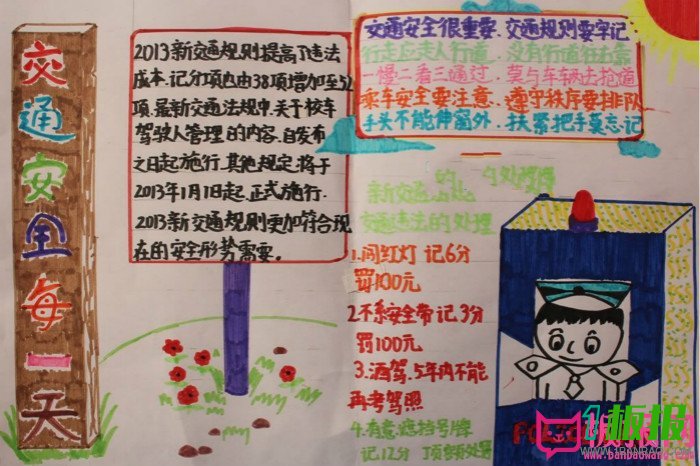 交通安全每一天
2013新交通规则提高了违法
成本.记分项内由38项增加至52
项.最新交通法规中.关于校车
驾驶人管理的内容.自发布
之日起施行.其他规定.将于
2013年1月1日起.正式施行.
2013新交通规则更加符合现
在的安全形势需要.
交通安全很重要.交通规则要牢记
行走应走人行道.没有行道往右靠
一慢二看三通过.莫与车辆去抢道
乘车安全要注意.遵守秩序要排队
手头不能伸窗外.扶紧把手莫忘记
新交通
交通违法的处理
1.闯红灯 记6分
罚100元
2.不系安全带记3分
罚100元
3.酒驾.5年内不能
再考驾照
4.有意遮挡号牌
记12分 顶额处罚
板报网